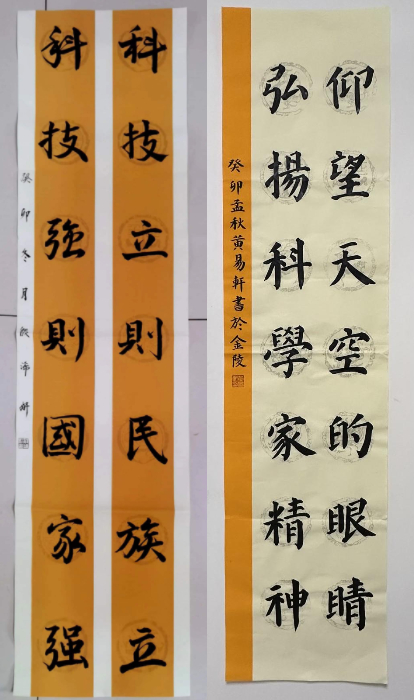 科技立則民族立
科技強則國家强
癸卯冬月
仰望天空的眼睛
弘揚科學家精神
癸卯孟秋黄易軒書於金陵